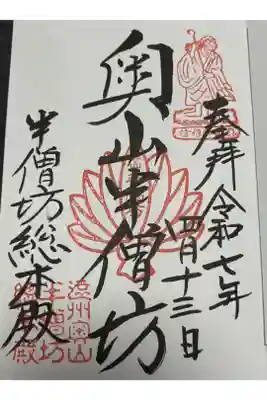 奉拝
令和七年
四月十三日
奥山半僧坊
半僧坊総本殿
遠州奥山
半僧坊
総本殿